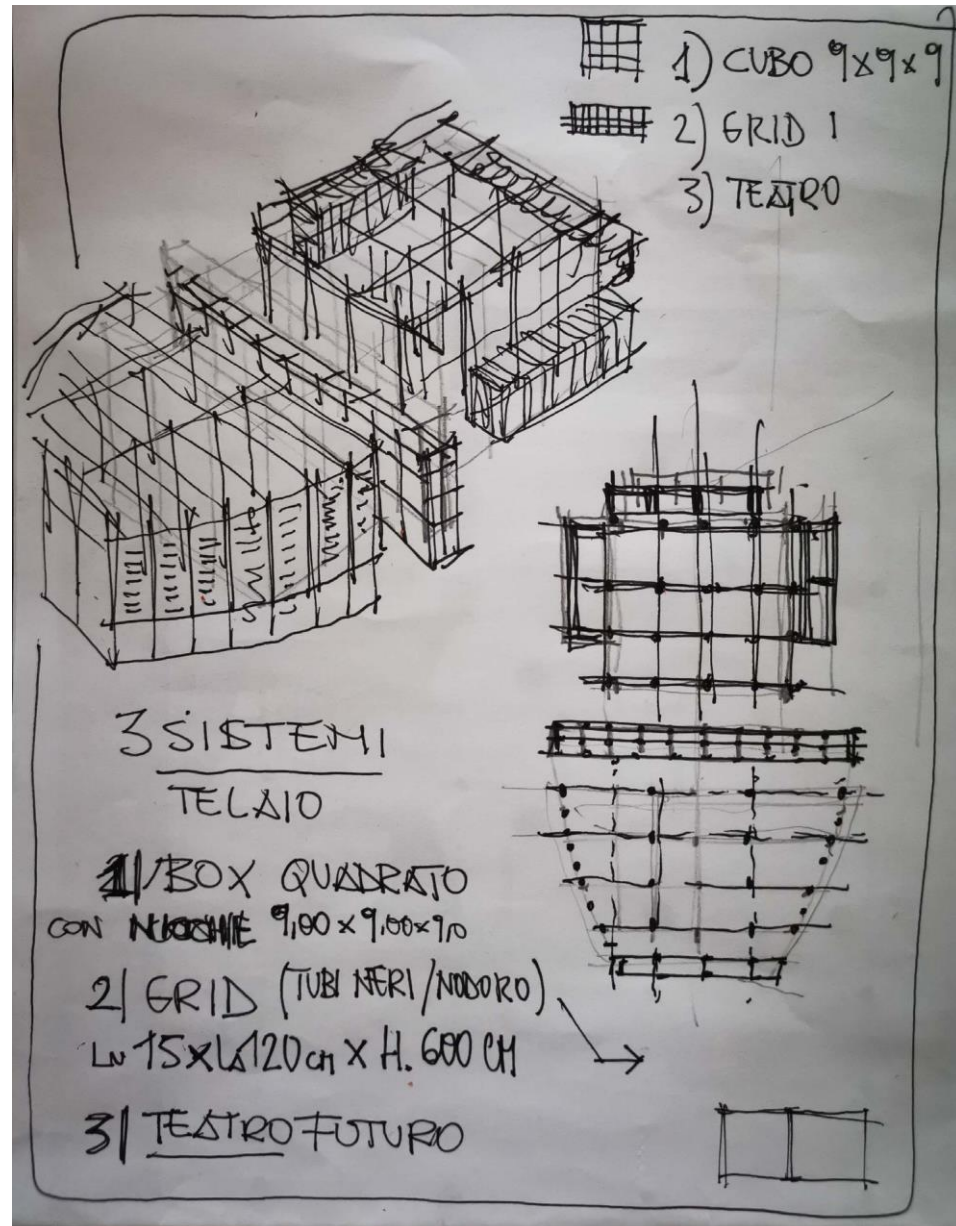 1) CUBO 9x9x9
2) GRID 1
3) TEATRO
3 SISTEMI
TELAIO
1/ BOX QUADRATO
CON NICCHIE 9,00 x 9,00 x 9,0
2/ GRID (TUBI NERI/NODORO)
LN 15 x LA 120 cm x H. 600 CM
3/ TEATRO FUTURO